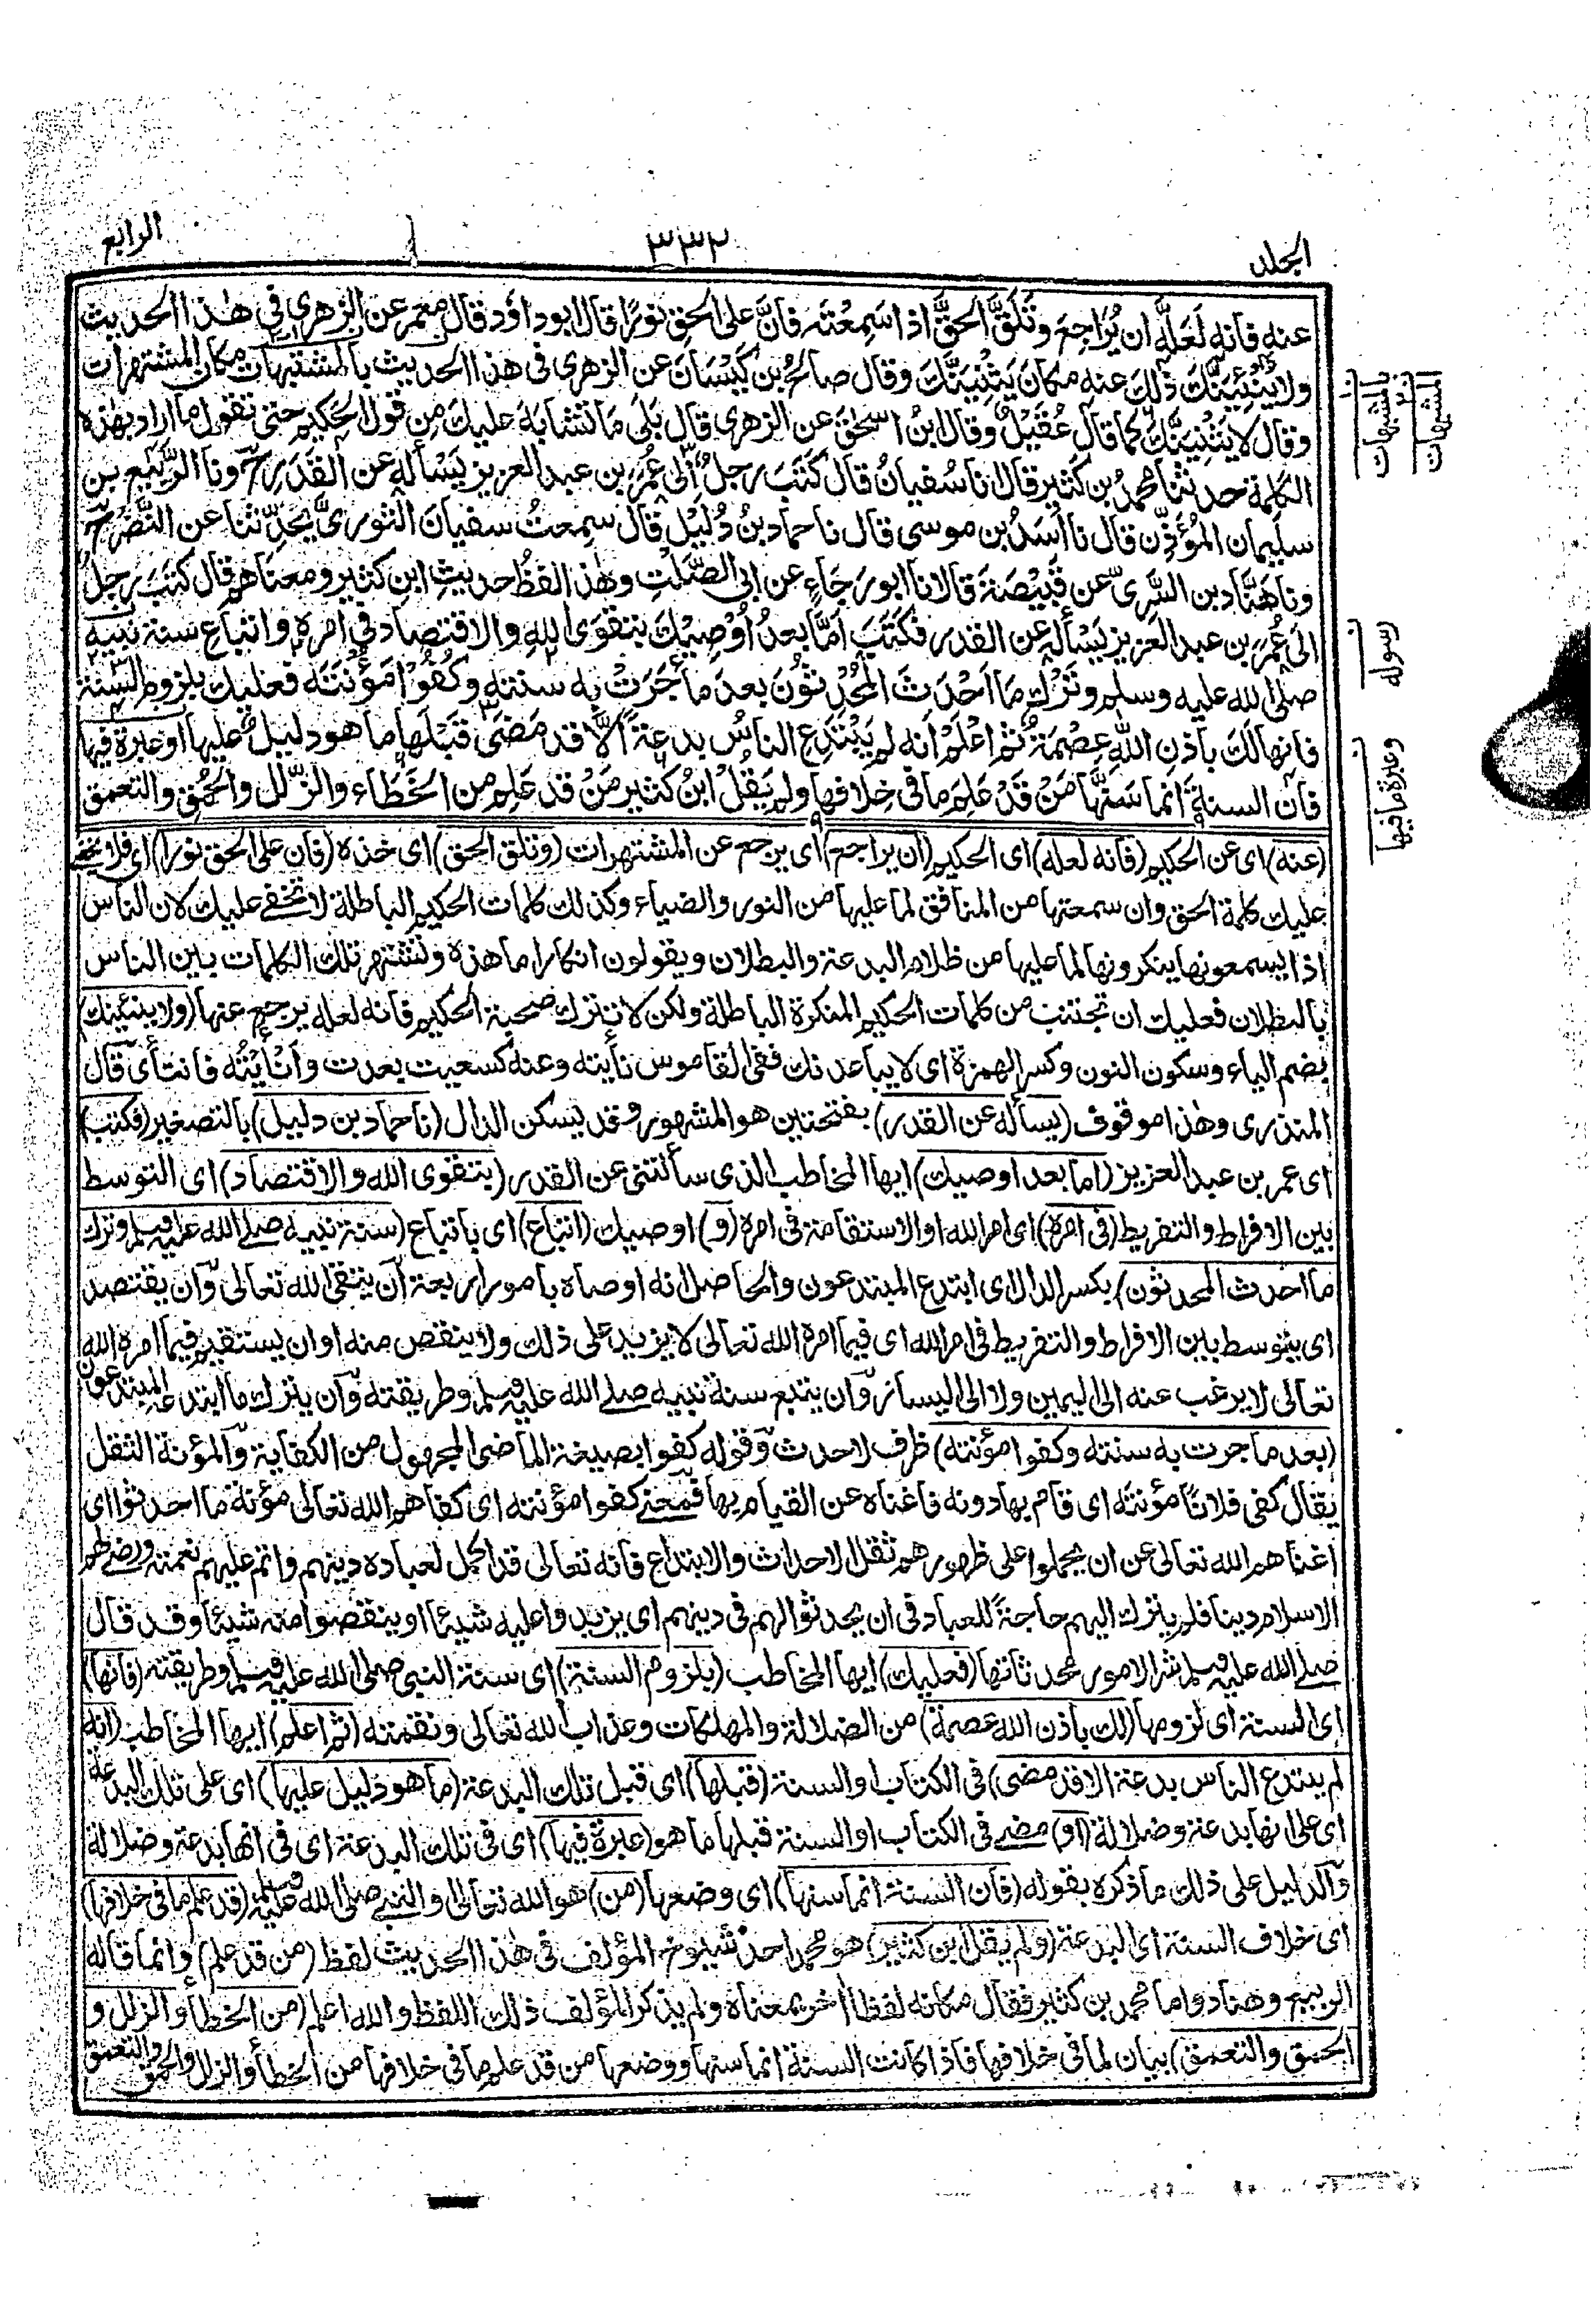 المجلد
٣٣٢
الرابع
عنه فانه لَعَلَّه ان يُرَاجِعَ وتَلَقَّ الحقَّ اذا سَمِعْتَه فانَّ على الحق نورًا قال ابوداؤد قال معمر عن الزهري في هذا الحديث
ولا يُنْئِيَنَّكَ ذلك عنه مكانَ يَثْنِيَنَّكَ وقال صالحُ بن كَيْسَانَ عن الزهري في هذا الحديث بالمشتبهات مكان المشتهرات
وقال لا يَثْنِيَنَّكَ كما قال عُقَيْلٌ وقال ابنُ اسحٰقَ عن الزهري قال بَلٰى ما تَشَابَهَ عليك مِن قول الحكيم حتى تقول ما اراد بهذه
الكلمة حدثنا محمدُ بن كثير قال انا سُفيانُ قال كَتَبَ رجلٌ الٰى عُمَرَ بن عبد العزيز يَسْأَلُه عن القَدَرِ ح ونا الرَّبيع بن
سليمان المُؤَذِّن قال نا اَسَدُ بن موسى قال نا حماد بنُ دُلَيْلٍ قال سمِعتُ سفيانَ الثوريَّ يُحَدِّثنا عن النَّضْر ح
ونا هَنَّاد بن السَّريّ عن قَبِيْصَةَ قالا نا ابو رَجَاءٍ عن ابي الصَّلْتِ وهٰذا لفظُ حديثِ ابن كثير ومعناهم قال كَتَبَ رجلٌ
الى عُمَرَ بن عبد العزيز يَسْأَلُه عن القدر فكَتَبَ اَمَّا بعدُ اُوصِيْكَ بتقوى اللهِ والاقتصاد في اَمْرِه واتباع سنة نبيه
صلى الله عليه وسلم وتَرْكِ ما اَحْدَثَ المُحْدِثُونَ بعدَ ما جَرَتْ به سنته وكُفُوْا مَؤُنَتَه فعليك بلزوم السُّنة
فانها لكَ باذن الله عِصْمَةٌ ثم اعْلَمْ انه لم يَبْتَدِعِ الناسُ بدعةً اِلَّا قد مَضٰى قَبْلَها ما هو دليلٌ عليها او عبرة فيها
فان السنة انما سَنَّها مَنْ قَدْ عَلِمَ ما في خِلافها ولم يَقُلْ ابنُ كثير مَنْ قد عَلِمَ من الخَطَاء والزَّلل والحُمْق والتعمق
بالشبهات
المشبهات
رسوله
وعبرة ما فيها
(عنه) اى عن الحكيم (فانه لعله) اى الحكيم (ان يراجع) اى يرجع عن المشتهرات (وتلق الحق) اى خذه (فان على الحق نورا) اى فلا يخفى
عليك كلمة الحق وان سمعتها من المنافق لما عليها من النور والضياء وكذلك كلمات الحكيم الباطلة لا تخفى عليك لان الناس
اذا يسمعونها ينكرونها لما عليها من ظلام البدعة والبطلان ويقولون انكارا ما هذه وتشتهر تلك الكلمات بين الناس
بالبطلان فعليك ان تجتنب من كلمات الحكيم المنكرة الباطلة ولكن لا تترك صحبة الحكيم فانه لعله يرجع عنها (ولا ينئينك)
بضم الياء وسكون النون وكسر الهمزة اى لا يباعدنك ففى القاموس نأيته وعنه كسعيت بعدت وانأيته فانتأى قال
المنذرى وهذا موقوف (يسأله عن القدر) بفتحتين هو المشهور وقد يسكن الدال (نا حماد بن دليل) بالتصغير (فكتب)
اى عمر بن عبد العزيز (اما بعد اوصيك) ايها المخاطب الذى سألتنى عن القدر (بتقوى الله والاقتصاد) اى التوسط
بين الافراط والتفريط (فى امره) اى امر الله او الاستقامة فى امره (و) اوصيك (اتباع) اى باتباع (سنة نبيه صلى الله عليه وسلم وترك
ما احدث المحدثون) بكسر الدال اى ابتدع المبتدعون والحاصل انه اوصاه بامور اربعة ان يتقى الله تعالى وان يقتصد
اى يتوسط بين الافراط والتفريط فى امر الله اى فيما امره الله تعالى لا يزيد على ذلك ولا ينقص منه او ان يستقيم فيما امره الله
تعالى لا يرغب عنه الى اليمين ولا الى اليسار وان يتبع سنة نبيه صلى الله عليه وسلم وطريقته وان يترك ما ابتدعه المبتدعون
(بعد ما جرت به سنته وكفوا مؤنته) ظرف لاحدث وقوله كفوا بصيغة الماضى المجهول من الكفاية والمؤنة الثقل
يقال كفى فلانًا مؤنته اى قام بها دونه فاغناه عن القيام بها فمعنى كفوا مؤنته اى كفاهم الله تعالى مؤنة ما احدثوا اى
اغناهم الله تعالى عن ان يحملوا على ظهورهم ثقل الاحداث والابتداع فانه تعالى قد اكمل لعباده دينهم واتم عليهم نعمته ورضى لهم
الاسلام دينا فلم يترك اليهم حاجةً للعباد فى ان يحدثوا لهم فى دينهم اى يزيدوا عليه شيئا او ينقصوا منه شيئا وقد قال
صلى الله عليه وسلم شر الامور محدثاتها (فعليك) ايها المخاطب (بلزوم السنة) اى سنة النبى صلى الله عليه وسلم وطريقته (فانها)
اى السنة اى لزومها (لك باذن الله عصمة) من الضلالة والمهلكات وعذاب الله تعالى ونقمته (ثم اعلم) ايها المخاطب (انه
لم يبتدع الناس بدعة الا قد مضى) فى الكتاب او السنة (قبلها) اى قبل تلك البدعة (ما هو دليل عليها) اى على تلك البدعة
اى على انها بدعة وضلالة (او) مضى فى الكتاب او السنة قبلها ما هو (عبرة فيها) اى فى تلك البدعة اى فى انها بدعة وضلالة
والدليل على ذلك ما ذكره بقوله (فان السنة انما سنها) اى وضعها (من) هو الله تعالى والنبى صلى الله عليه وسلم (قد علم ما فى خلافها)
اى خلاف السنة اى البدعة (ولم يقل ابن كثير) هو محمد احد شيوخ المؤلف فى هذا الحديث لفظ (من قد علم) وانما قاله
الربيع وهناد واما محمد بن كثير فقال مكانه لفظا اخر بمعناه ولم يذكر المؤلف ذلك اللفظ والله اعلم (من الخطأ والزلل و
الحمق والتعمق) بيان لما فى خلافها فاذا كانت السنة انما سنها ووضعها من قد علم ما فى خلافها من الخطأ والزلل والحمق والتعمق